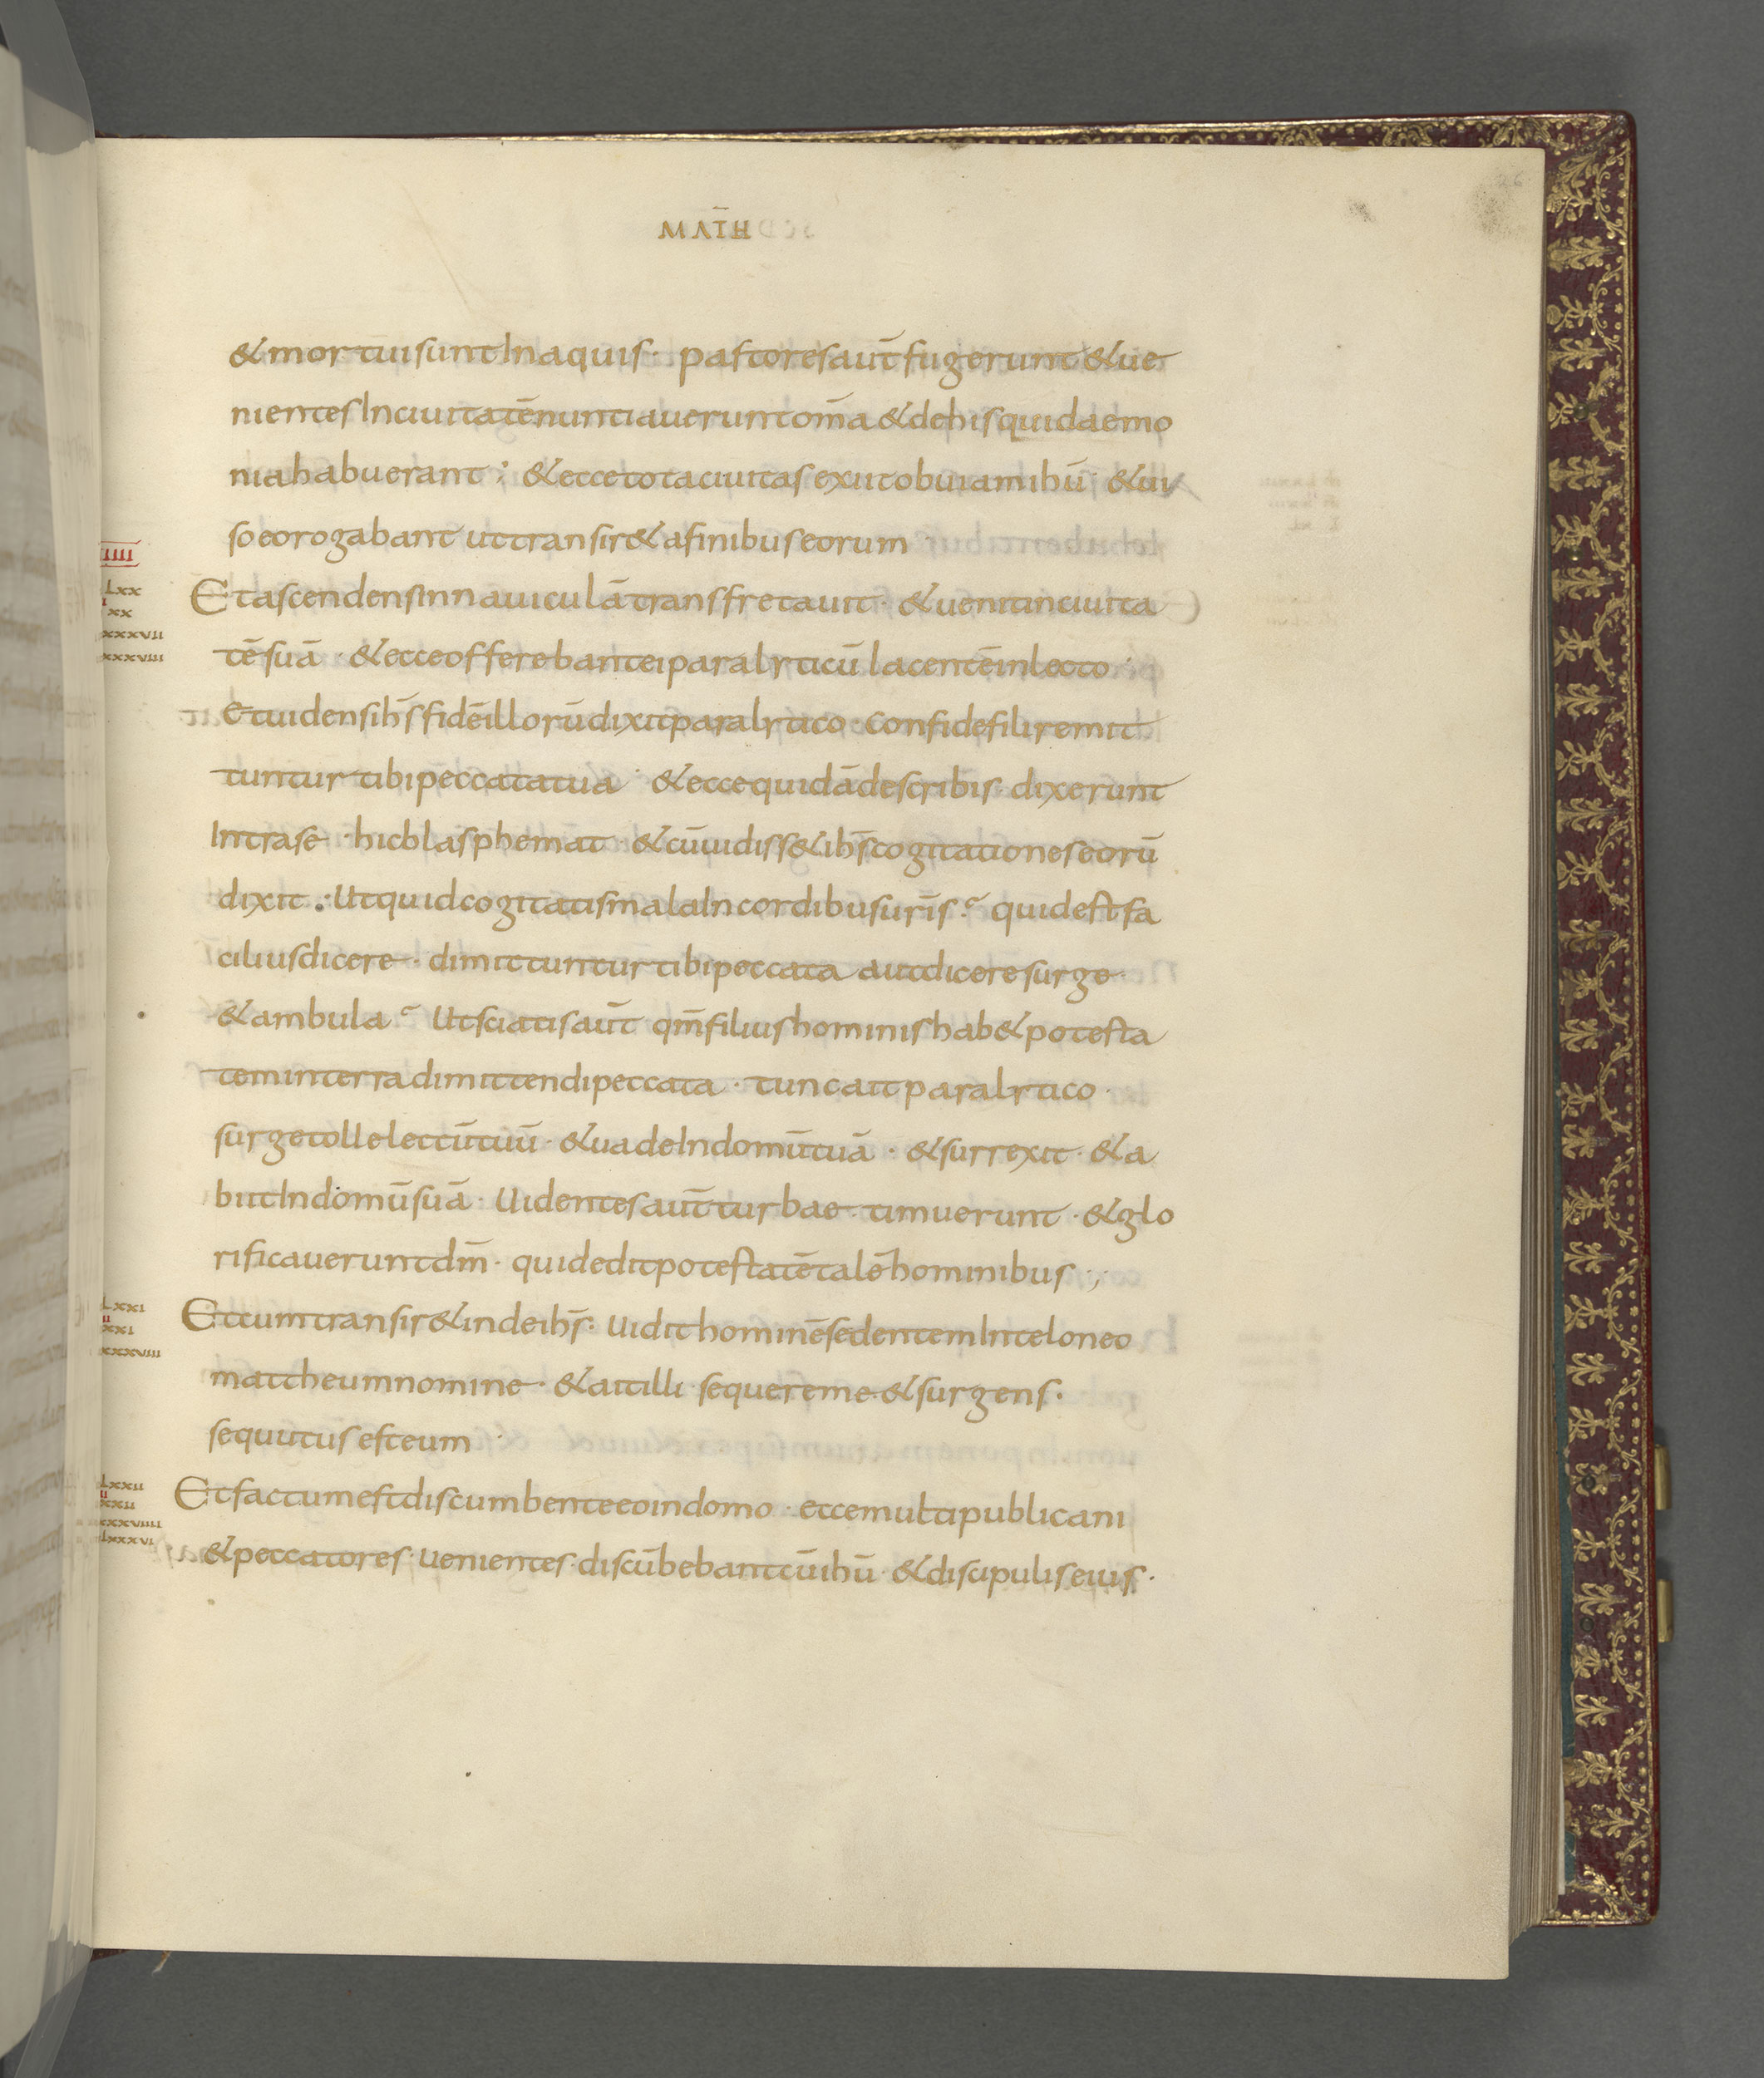 26
MAT̄H
& mortui sunt In aquis · pastores aut̄ fugerunt & ue
nientes In ciuitatē nuntiauerunt om̄a & de his qui daemo
nia habuerant ; & ecce tota ciuitas exiit obuiam ihū · & ui
so eo rogabant ut transir& a finibus eorum
IIII
Lxx
II
xx
xxxvii
xxxviii
Et ascendens In nauiculā transfretauit · & uenit in ciuita
tē suā · & ecce offerebant ei paralyticū Iacentē in lecto ·
Et uidens ihs̄ fidē illorū dixit paralytico · Confide fili remit
tuntur tibi peccata tua · & ecce quidā de scribis · dixerunt
Intra se · hic blasphemat · & cū uidiss& ihs̄ cogitationes eorū
dixit · Ut quid cogitatis mala In cordibus uris̄ · quid est fa
cilius dicere · dimittuntur tibi peccata aut dicere surge
& ambula · Ut sciatis aut̄ qm̄ filius hominis hab& potesta
tem in terra dimittendi peccata · tunc ait paralytico ·
surge tolle lectū tuū · & uade In domū tuā · & surrexit · & a
biit In domū suā · Uidentes aut̄ turbae timuerunt · & glo
rificauerunt dm̄ · qui dedit potestatē talē hominibus ·,
Lxxi
II
xxi
xxxviii
Et cum transir& inde ihs̄ · uidit hominē sedentem In teloneo
mattheum nomine · & ait illi · sequere me · & surgens ·
sequutus est eum ·
Lxxii
II
xxii
xxxviiii
Lxxxvi
Et factum est discumbente eo in domo · ecce multi publicani
& peccatores · uenientes · discūbebant cū ihū · & discipulis eius ·